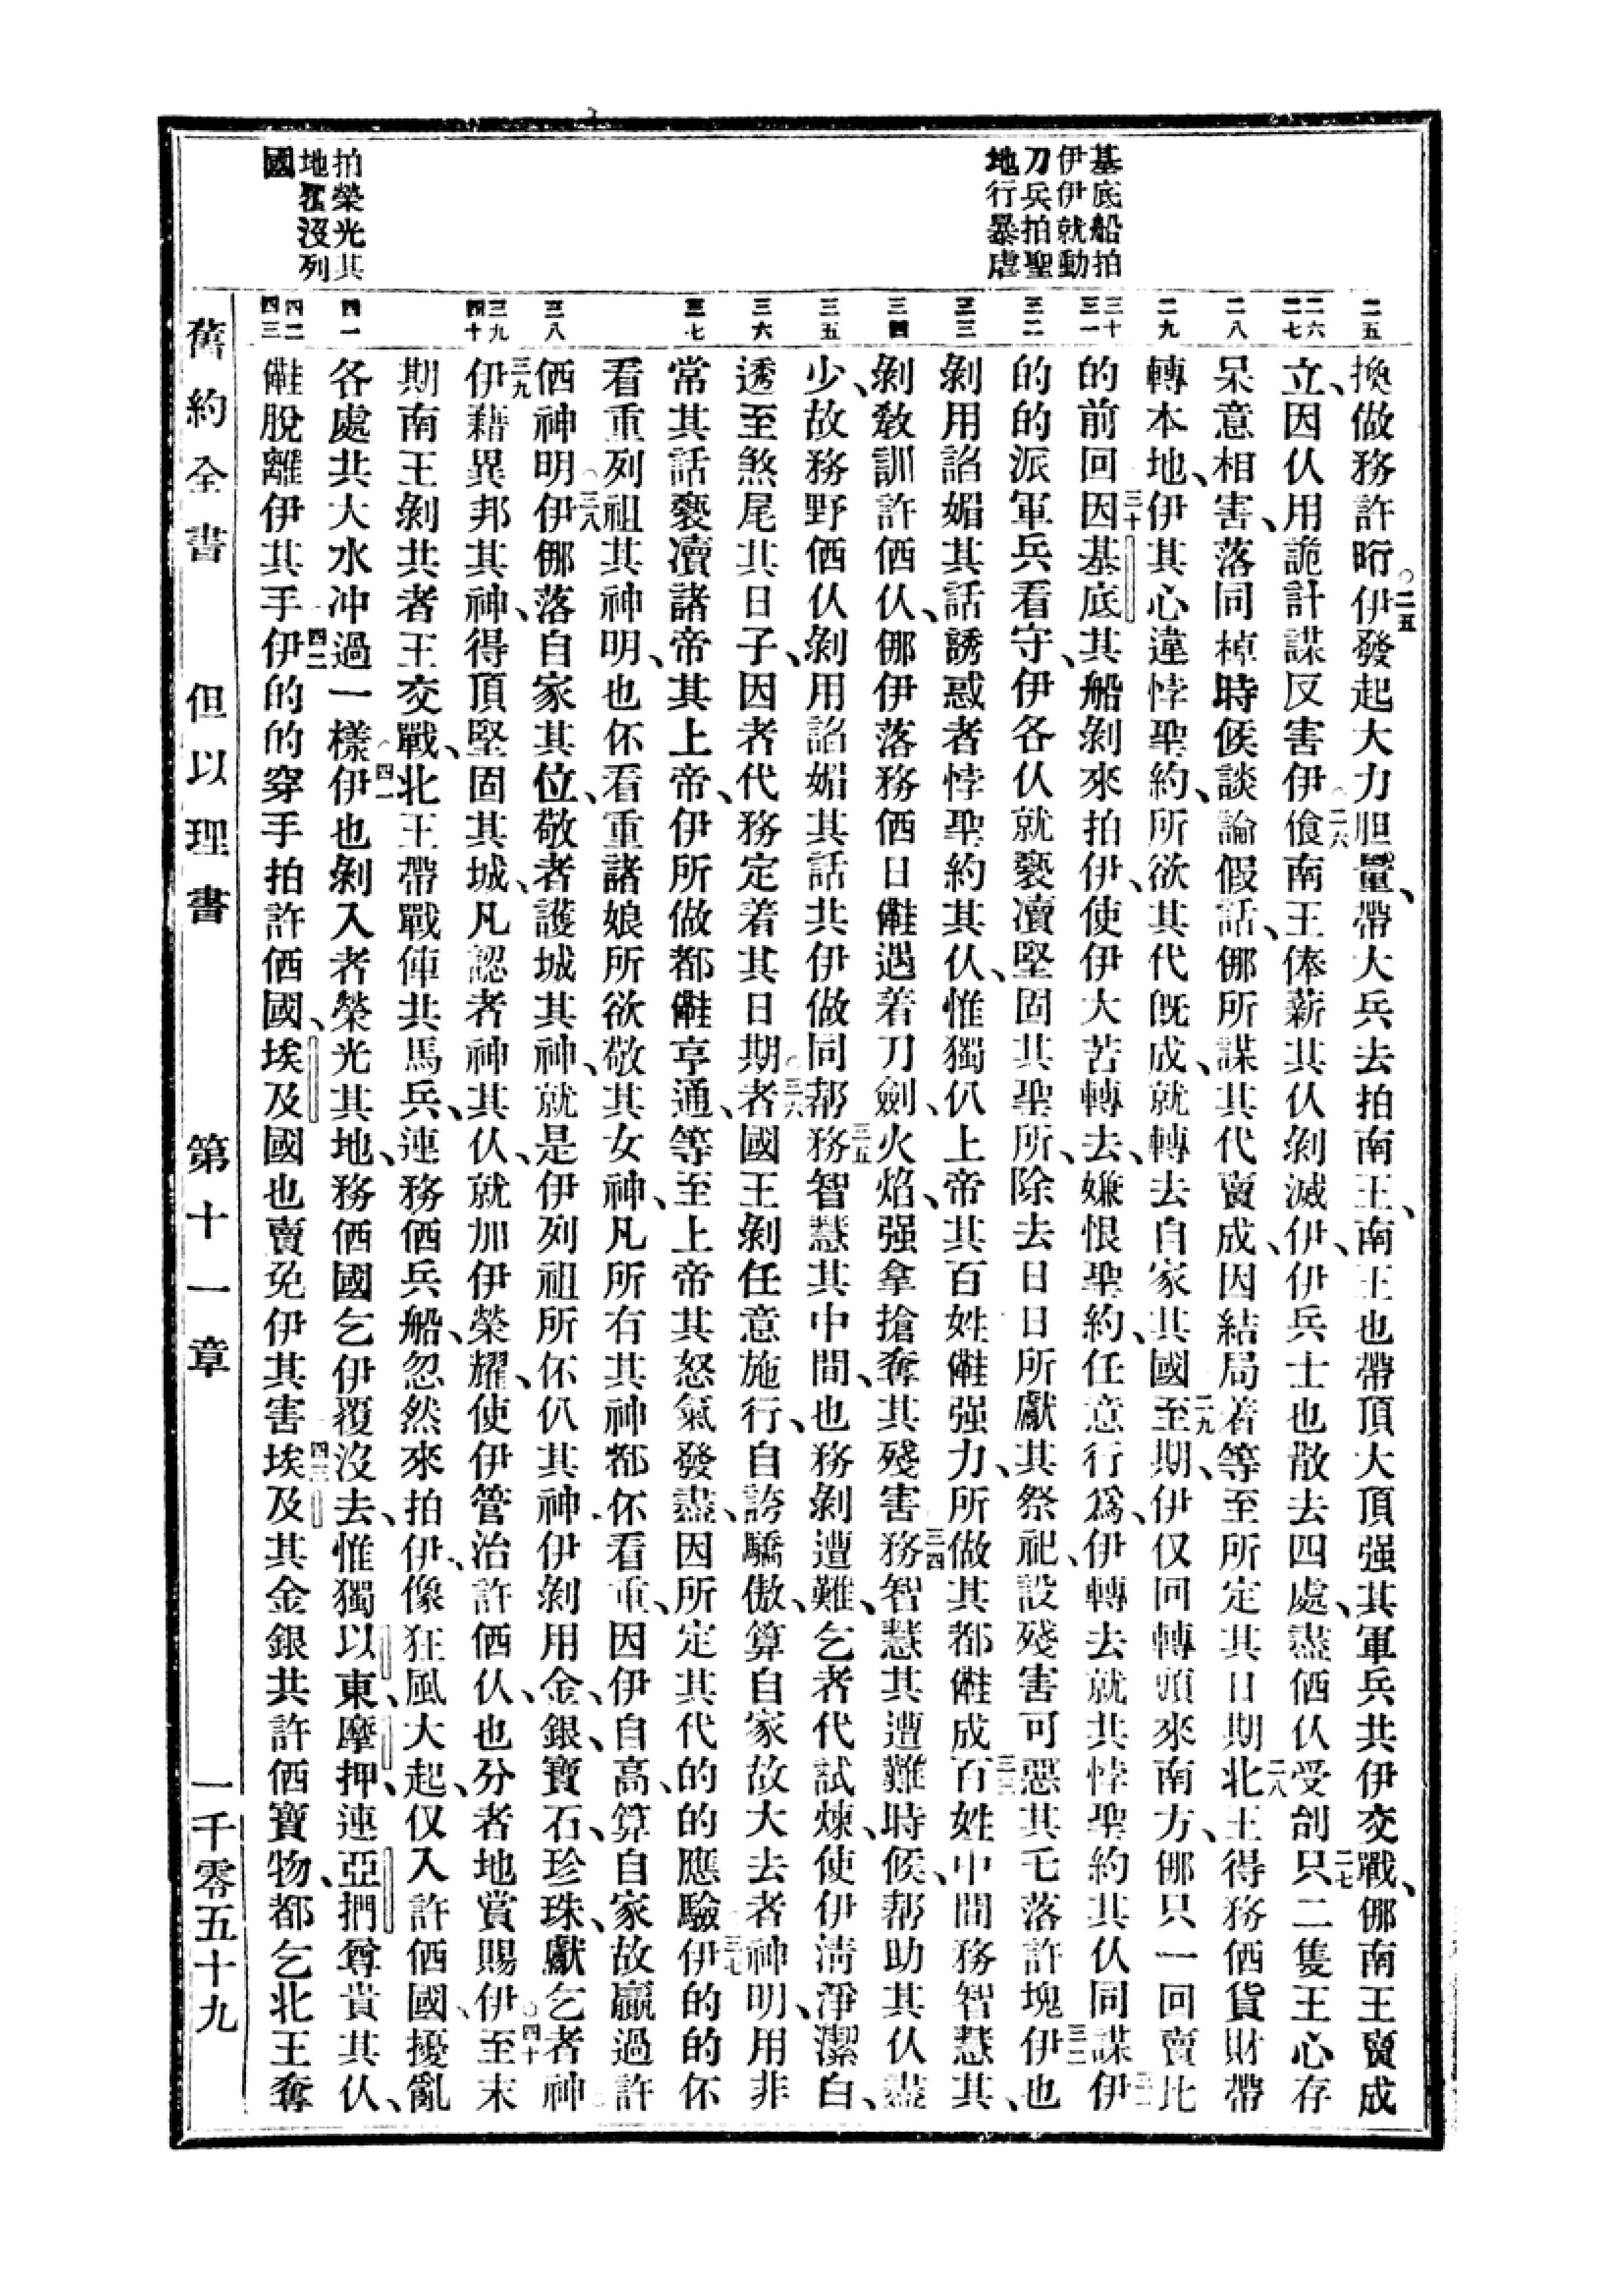 基底船拍
伊伊就動
刀兵拍聖
地行暴虐
拍榮光其
地覆沒列
國
二五
二六
二七
二八
二九
三十
三一
三二
三三
三四
三五
三六
三七
三八
三九
四十
四一
四二
四三
換做務許昕伊發起大力胆量、帶大兵去拍南王、南王也帶頂大頂强其軍兵共伊交戰、哪南王賣成
立、因仈用詭計謀反害伊飡南王俸薪其仈剝滅伊、伊兵士也散去四處、盡価仈受刣只二隻王心存
呆意相害、落同棹時候談論假話、哪所謀其代賣成、因結局着等至所定其日期北王得務価貨財帶
轉本地、伊其心違悖聖約、所欲其代旣成、就轉去自家其國至期、伊仅回轉頭來南方、哪只一回賣比
的前回因基底其船剝來拍伊、使伊大苦轉去、嫌恨聖約、任意行爲、伊轉去就共悖聖約其仈同謀伊
的的派軍兵看守、伊各仈就褻凟堅固其聖所、除去日日所獻其祭祀、設殘害可惡其乇落許塊伊也
剝用諂媚其話誘惑者悖聖約其仈、惟獨仈上帝其百姓𣍐强力、所做其都𣍐成百姓中間務智慧其、
剝敎訓許価仈、哪伊落務価日𣍐遇着刀劍、火焰、强拿搶奪其殘害務智慧其遭難時候、帮助其仈盡
少、故務野価仈剝用諂媚其話共伊做同帮務智慧其中間、也務剝遭難、乞者代試煉、使伊淸淨潔白、
透至煞尾其日子、因者代務定着其日期者國王剝任意施行、自誇驕傲、算自家故大去者神明、用非
常其話褻凟諸帝其上帝、伊所做都𣍐亨通、等至上帝其怒氣發盡、因所定其代的的應驗伊的的伓
看重列祖其神明、也伓看重諸娘所欲敬其女神、凡所有其神都伓看重、因伊自高、算自家故贏過許
価神明伊哪落自家其位、敬者護城其神、就是伊列祖所伓仈其神伊剝用金、銀、寶石、珍珠、獻乞者神
伊藉異邦其神、得頂堅固其城、凡認者神其仈、就加伊榮耀、使伊管治許価仈、也分者地賞賜伊至末
期南王剝共者王交戰、北王帶戰俥共馬兵、連務価兵船、忽然來拍伊、像狂風大起、仅入許価國、擾亂
各處共大水冲過一樣伊也剝入者榮光其地、務価國乞伊覆沒去、惟獨以東、摩押、連亞捫尊貴其仈、
𣍐脫離伊其手伊的的穿手拍許価國、埃及國也賣免伊其害埃及其金銀共許価寶物、都乞北王奪
舊約全書　但以理書　第十一章　一千零五十九